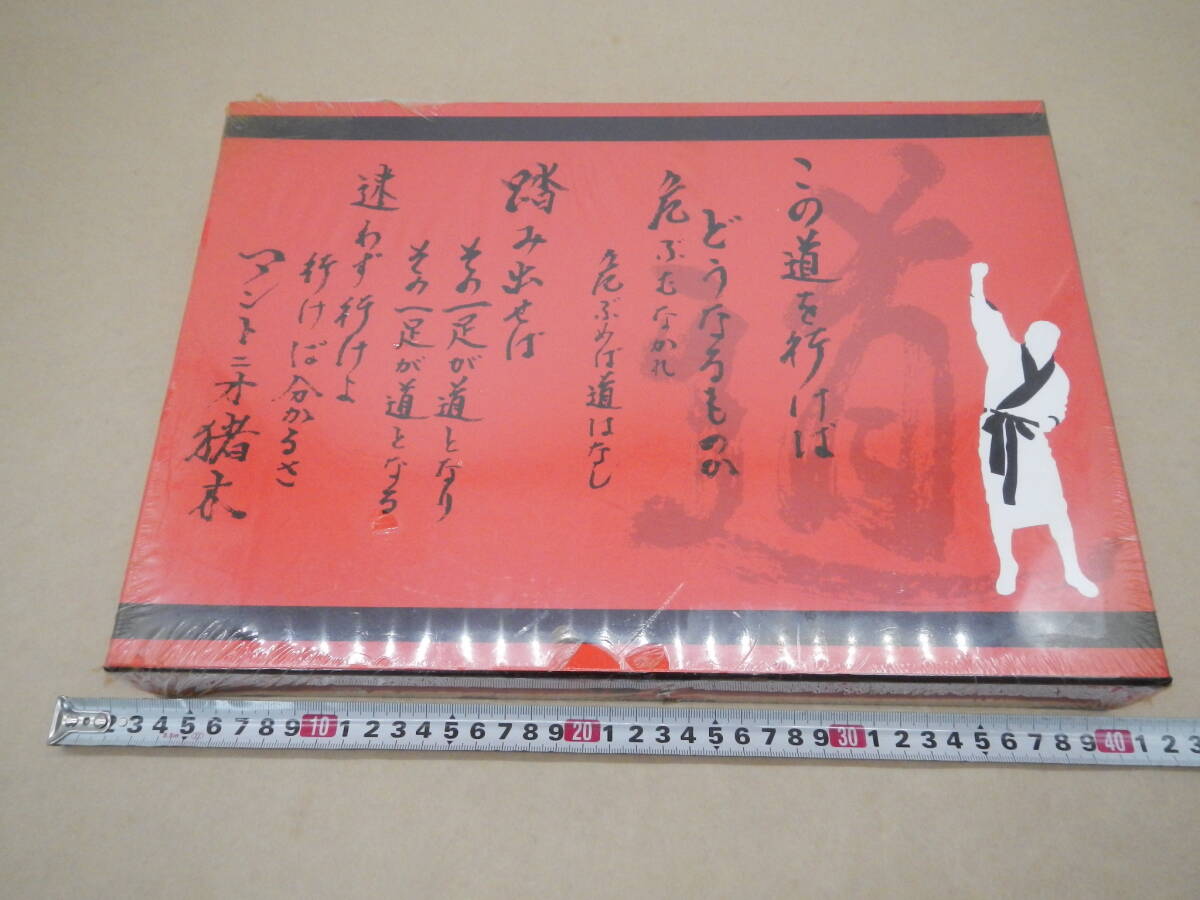 道
この道を行けば
どうなるものか
危ぶむなかれ
危ぶめば道はなし
踏み出せば
その一足が道となり
その一足が道となる
迷わず行けよ
行けば分かるさ
アントニオ猪木
2 3 4 5 6 7 8 9 10 1 2 3 4 5 6 7 8 9 20 1 2 3 4 5 6 7 8 9 30 1 2 3 4 5 6 7 8 9 40 1 2 3